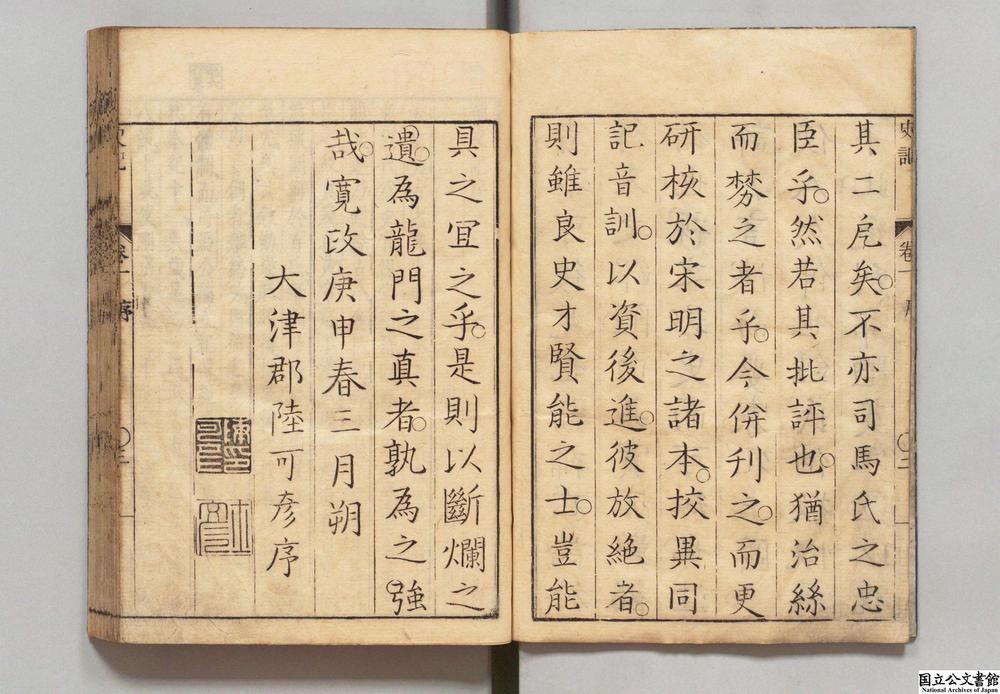 其二臣矣。不亦司馬氏之忠
臣乎。然若其批評也。猶治絲
而棼之者乎。今併刋之。而更
研核於宋明之諸本。挍異同
記音訓。以資後進。彼放絶者。
則雖良史才賢能之士。豈能
具之宜之乎。是則以斷爛之
遺。為龍門之真者。孰為之強
哉。寛政庚申春三月朔
大津郡陸可彦序
史記
卷一
序
〇二
史記
卷一
序
〇三
国立公文書館
National Archives of Japan